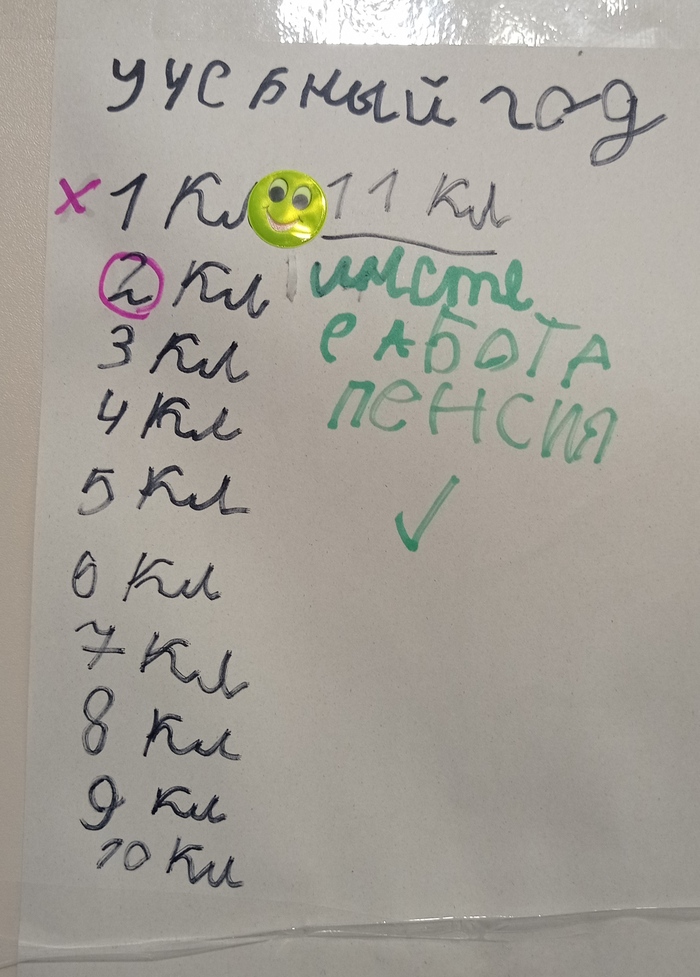 учебный год
х 1 Кл
2 Кл
3 Кл
4 Кл
5 Кл
6 Кл
7 Кл
8 Кл
9 Кл
10 Кл
11 Кл
инсте
РАБОТА
ПЕНСИЯ